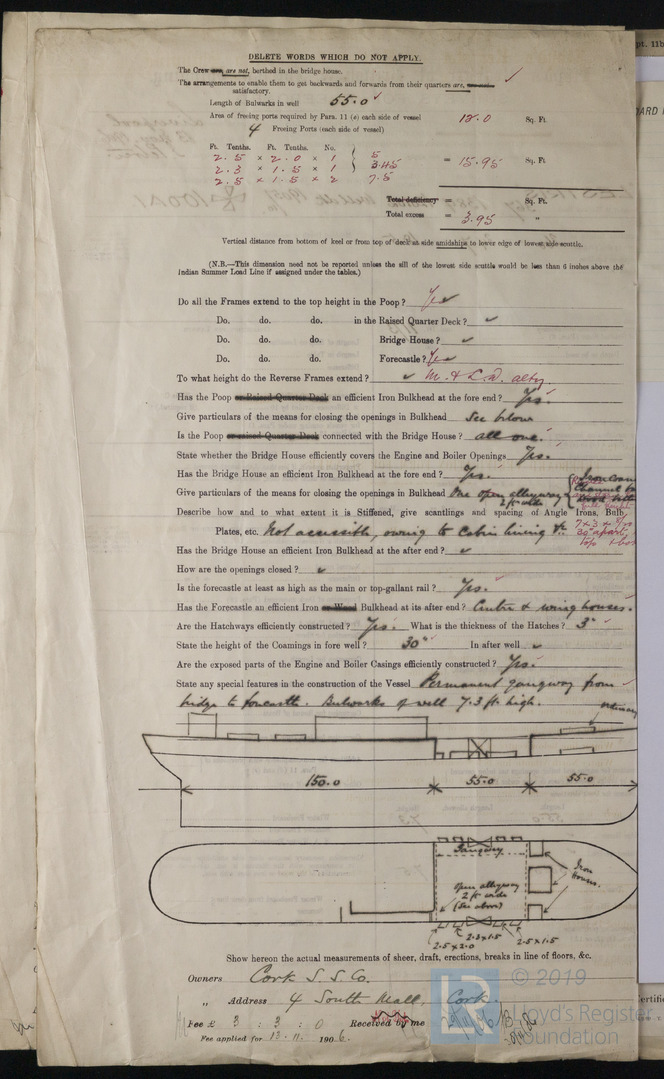 DELETE WORDS WHICH DO NOT APPLY.
The Crew are are not, berthed in the bridge house.
The arrangements to enable them to get backwards and forwards from their quarters are, are not
satisfactory.
Length of Bulwarks in well 55.0
Area of freeing ports required by Para. 11 (e) each side of vessel 12.0 Sq. Ft.
4 Freeing Ports (each side of vessel)
Ft. Tenths. Ft. Tenths. No.
2.5 × 2.0 × 1 5
2.3 × 1.5 × 1 3.45 = 15.95 Sq. Ft.
2.5 × 1.5 × 2 7.5
Total deficiency = Sq. Ft.
Total excess = 3.95 "
Vertical distance from bottom of keel or from top of deck at side amidships to lower edge of lowest side scuttle.
(N.B.—This dimension need not be reported unless the sill of the lowest side scuttle would be less than 6 inches above the
Indian Summer Load Line if assigned under the tables.)
Do all the Frames extend to the top height in the Poop? Yes
Do. do. do. in the Raised Quarter Deck?
Do. do. do. Bridge House?
Do. do. do. Forecastle? Yes
To what height do the Reverse Frames extend? M. & L.D. alty.
Has the Poop or Raised Quarter Deck an efficient Iron Bulkhead at the fore end? Yes.
Give particulars of the means for closing the openings in Bulkhead See below
Is the Poop or raised Quarter Deck connected with the Bridge House? all one.
State whether the Bridge House efficiently covers the Engine and Boiler Openings. Yes.
Has the Bridge House an efficient Iron Bulkhead at the fore end? Yes.
Give particulars of the means for closing the openings in Bulkhead One open alleyway 2 ft wide
Describe how and to what extent it is Stiffened, give scantlings and spacing of Angle Irons, Bulb
Plates, etc. Not accessible, owing to Cabin lining &c. 7×3× 30" apart, top
Has the Bridge House an efficient Iron Bulkhead at the after end?
How are the openings closed?
Is the forecastle at least as high as the main or top-gallant rail? Yes.
Has the Forecastle an efficient Iron or Wood Bulkhead at its after end? Centre & wing houses.
Are the Hatchways efficiently constructed? Yes. What is the thickness of the Hatches? 3"
State the height of the Coamings in fore well? 30" In after well
Are the exposed parts of the Engine and Boiler Casings efficiently constructed? Yes.
State any special features in the construction of the Vessel Permanent gangway from
bridge to forecastle. Bulwarks of well 7.3 ft. high.
150.0 55.0 55.0
Gangway
Open alleyway
2 ft wide
(See above)
Iron
Houses.
2.5×2.0 2.3×1.5 2.5×1.5
Show hereon the actual measurements of sheer, draft, erections, breaks in line of floors, &c.
Owners Cork S.S. Co.
" Address 4 South Mall, Cork.
Fee £ 3 : 3 : 0 Received by me
Fee applied for 13.11. 1906.
LR © 2019
Lloyd's Register
Foundation